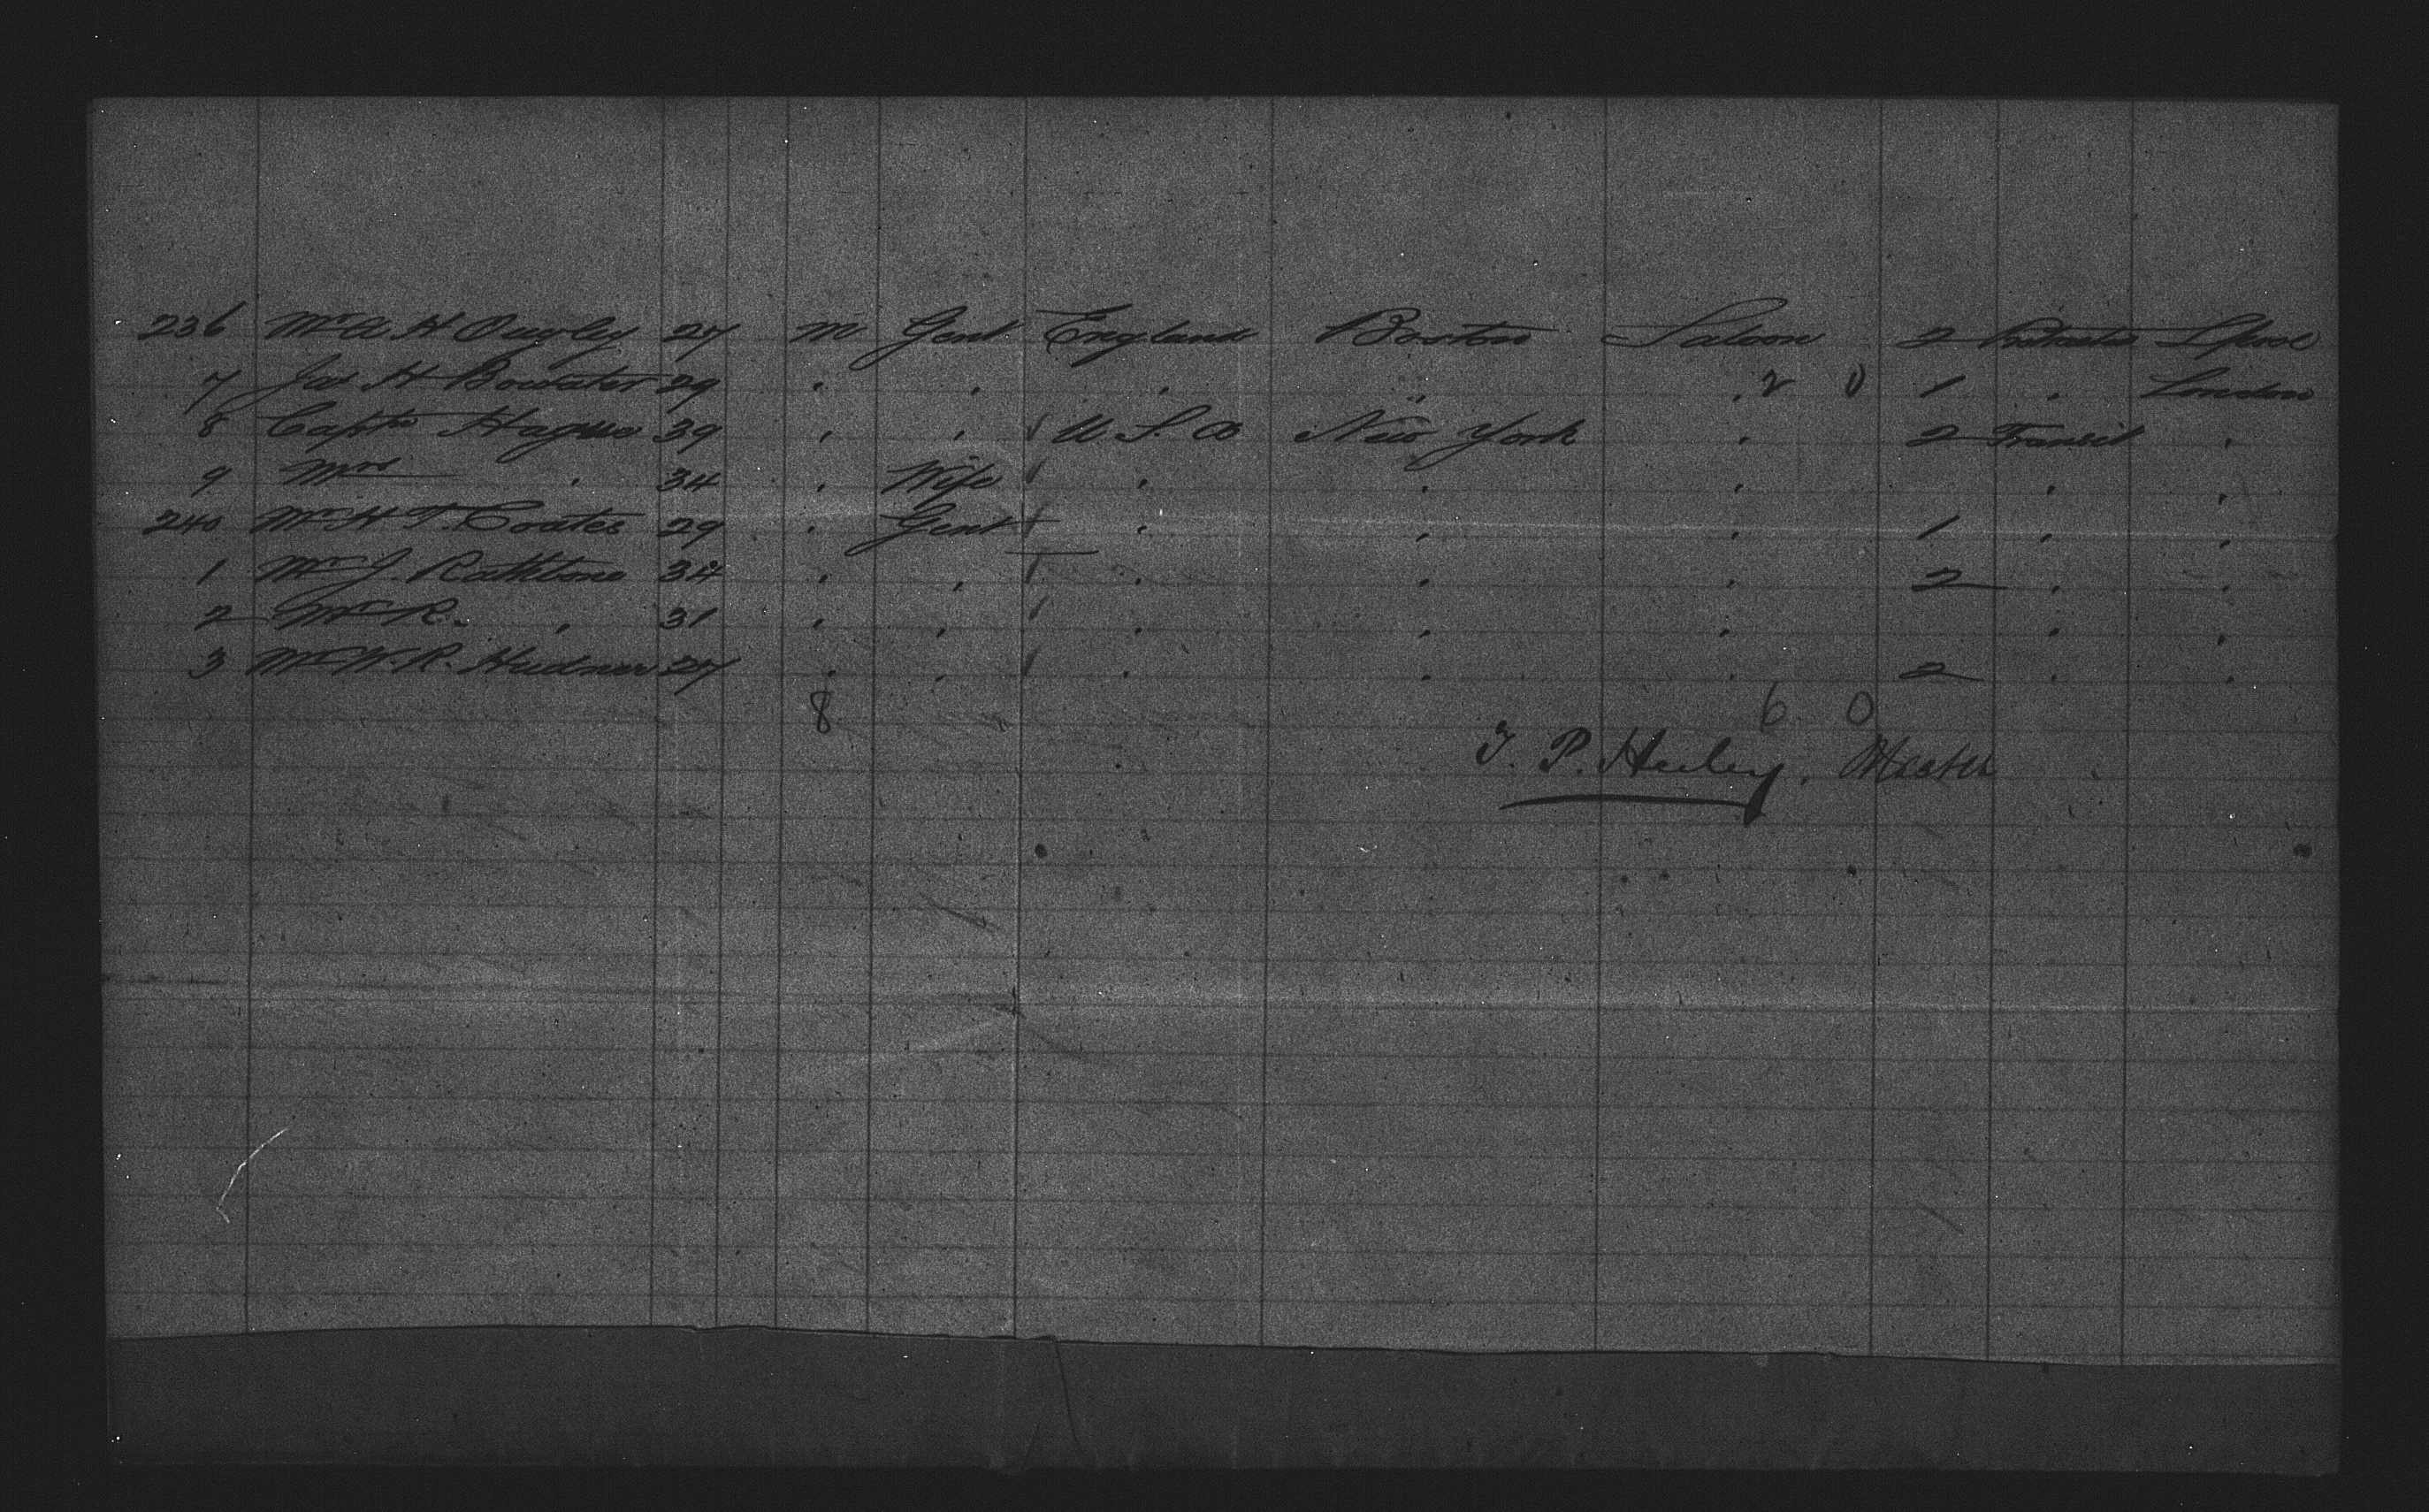 236 Mr A. H Quigley 27 M Gent England Boston Saloon 2 Protracted Lpool
7 Jas H Bowater 29 " " " " " 2 0 1 " London
8 Captn Hague 39 " " U. S. A New York " 2 Transit "
9 Mrs " 34 " Wife " " " " "
240 Mr H T. Coates 29 " Gent " " " 1 " "
1 Mr J. Rathbone 34 " " " " " 2 " "
2 Mr R. " 31 " " " " " " "
3 Mr W. R. Hudner 27 " " " " " 2 " "
8 6 0
Master